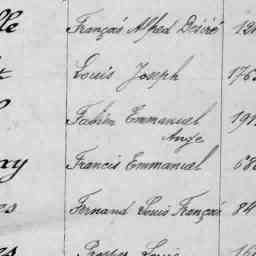 lle François Alfred Désiré 12
t Louis Joseph 176
Fabien Emmanuel 191
Ange
xy Francis Emmanuel 68
es Fernand Louis François 84
es Louis 16